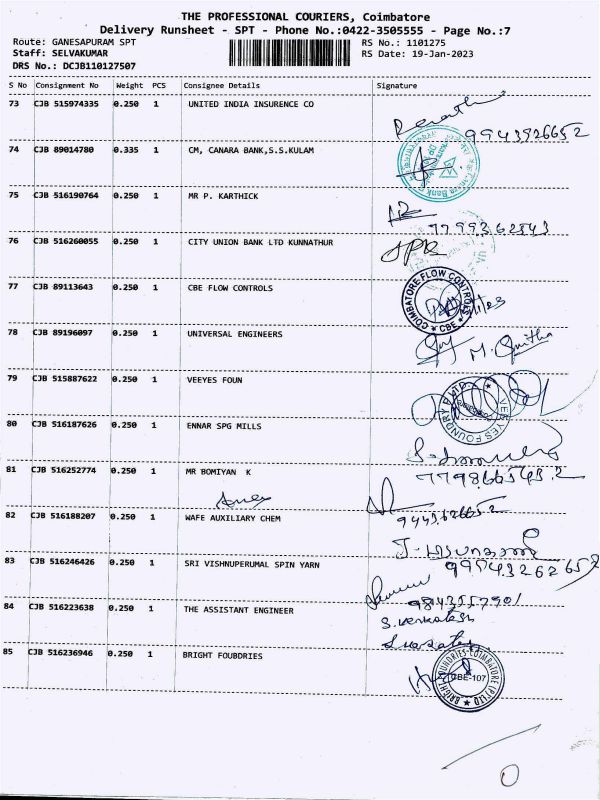 THE PROFESSIONAL COURIERS, Coimbatore
Delivery Runsheet - SPT - Phone No.:0422-3505555 - Page No.:7
Route: GANESAPURAM SPT RS No.: 1101275
Staff: SELVAKUMAR RS Date: 19-Jan-2023
DRS No.: DCJB110127507
S No Consignment No Weight PCS Consignee Details Signature
73 CJB 515974335 0.250 1 UNITED INDIA INSURENCE CO
9943926652
74 CJB 89014780 0.335 1 CM, CANARA BANK,S.S.KULAM
75 CJB 516190764 0.250 1 MR P. KARTHICK
76 CJB 516260055 0.250 1 CITY UNION BANK LTD KUNNATHUR
77 CJB 89113643 0.250 1 CBE FLOW CONTROLS
COIMBATORE FLOW CONTROLS
CBE
78 CJB 89196097 0.250 1 UNIVERSAL ENGINEERS
79 CJB 515887622 0.250 1 VEEYES FOUN
80 CJB 516187626 0.250 1 ENNAR SPG MILLS
81 CJB 516252774 0.250 1 MR BOMIYAN K
82 CJB 516188207 0.250 1 WAFE AUXILIARY CHEM
83 CJB 516246426 0.250 1 SRI VISHNUPERUMAL SPIN YARN
84 CJB 516223638 0.250 1 THE ASSISTANT ENGINEER
S. Venkatesh
85 CJB 516236946 0.250 1 BRIGHT FOUBDRIES
BRIGHT FOUNDRIES COIMBATORE (P) LTD
CBE-107